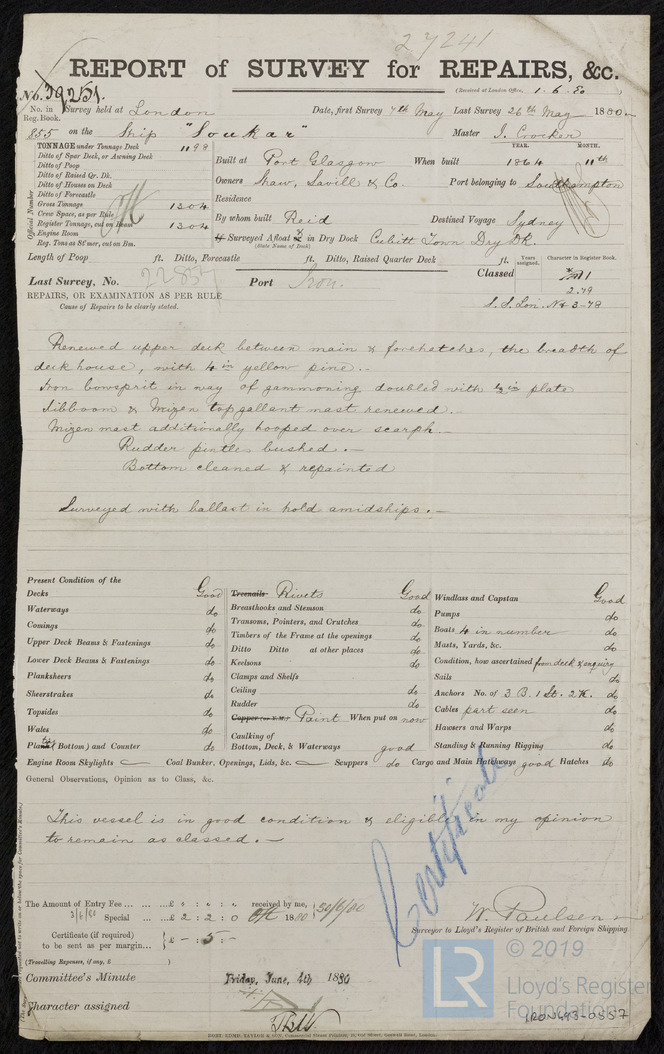 27241
REPORT of SURVEY for REPAIRS, &c.
(Received at London Office, 1.6.80)
No. 39251.
No. in Reg. Book. Survey held at London Date, first Survey 7th May Last Survey 26th May 1880
855 on the Ship "Soukar" Master J. Crocker
TONNAGE under Tonnage Deck 1198
Ditto of Spar Deck, or Awning Deck
Ditto of Poop
Ditto of Raised Qr. Dk.
Ditto of Houses on Deck
Ditto of Forecastle
Gross Tonnage 1304
Crew Space, as per Rule
Register Tonnage, cut on Beam 1304
Engine Room
Reg. Tons as St'mer, cut on Bm.
Official Number
YEAR. MONTH.
Built at Port Glasgow When built 1864 11th
Owners Shaw, Savill & Co. Port belonging to Southampton
Residence
By whom built Reid Destined Voyage Sydney
If Surveyed Afloat & in Dry Dock Cubitt Town Dry Dk.
(State Name of Dock)
Length of Poop ft. Ditto, Forecastle ft. Ditto, Raised Quarter Deck ft.
Years assigned. Character in Register Book.
Last Survey, No. 22837 Port Iron. Classed
2.79
S.S. Lon. No 3-78
REPAIRS, OR EXAMINATION AS PER RULE
Cause of Repairs to be clearly stated.
Renewed upper deck between main & forehatches, the breadth of
deckhouse, with 4 in yellow pine.-
Iron bowsprit in way of gammoning doubled with ½ in plate
Jibboom & Mizen topgallant mast renewed.
Mizen mast additionally hooped over scarph.-
Rudder pintles bushed.-
Bottom cleaned & repainted
Surveyed with ballast in hold amidships.-
Present Condition of the
Decks Good
Waterways do
Comings do
Upper Deck Beams & Fastenings do
Lower Deck Beams & Fastenings do
Planksheers do
Sheerstrakes do
Topsides do
Wales do
Plating (Bottom) and Counter do
Treenails Rivets Good
Breasthooks and Stemson do
Transoms, Pointers, and Crutches do
Timbers of the Frame at the openings do
Ditto Ditto at other places do
Keelsons do
Clamps and Shelfs
Ceiling do
Rudder do
Copper (or Y.M.) Paint When put on now
Caulking of
Bottom, Deck, & Waterways good
Windlass and Capstan Good
Pumps do
Boats 4 in number do
Masts, Yards, &c. do
Condition, how ascertained from deck & enquiry
Sails do
Anchors No. of 3 B. 1 St. 2 K. do
Cables part seen do
Hawsers and Warps do
Standing & Running Rigging do
Engine Room Skylights Coal Bunker, Openings, Lids, &c. Scuppers do Cargo and Main Hatchways good Hatches do
General Observations, Opinion as to Class, &c.
This vessel is in good condition & eligible in my opinion
to remain as classed.-
Certificate
The Amount of Entry Fee £ : : received by me,
2/6/80 Special £ 2 : 2 : 0 1880
Certificate (if required) to be sent as per margin £ - : 5 : -
(Travelling Expenses, if any, £ )
W. Paulsen
Surveyor to Lloyd's Register of British and Foreign Shipping.
Committee's Minute Friday, June, 4th 1880
Character assigned
LR
© 2019
Lloyd's Register
Foundation
IRON493-0557